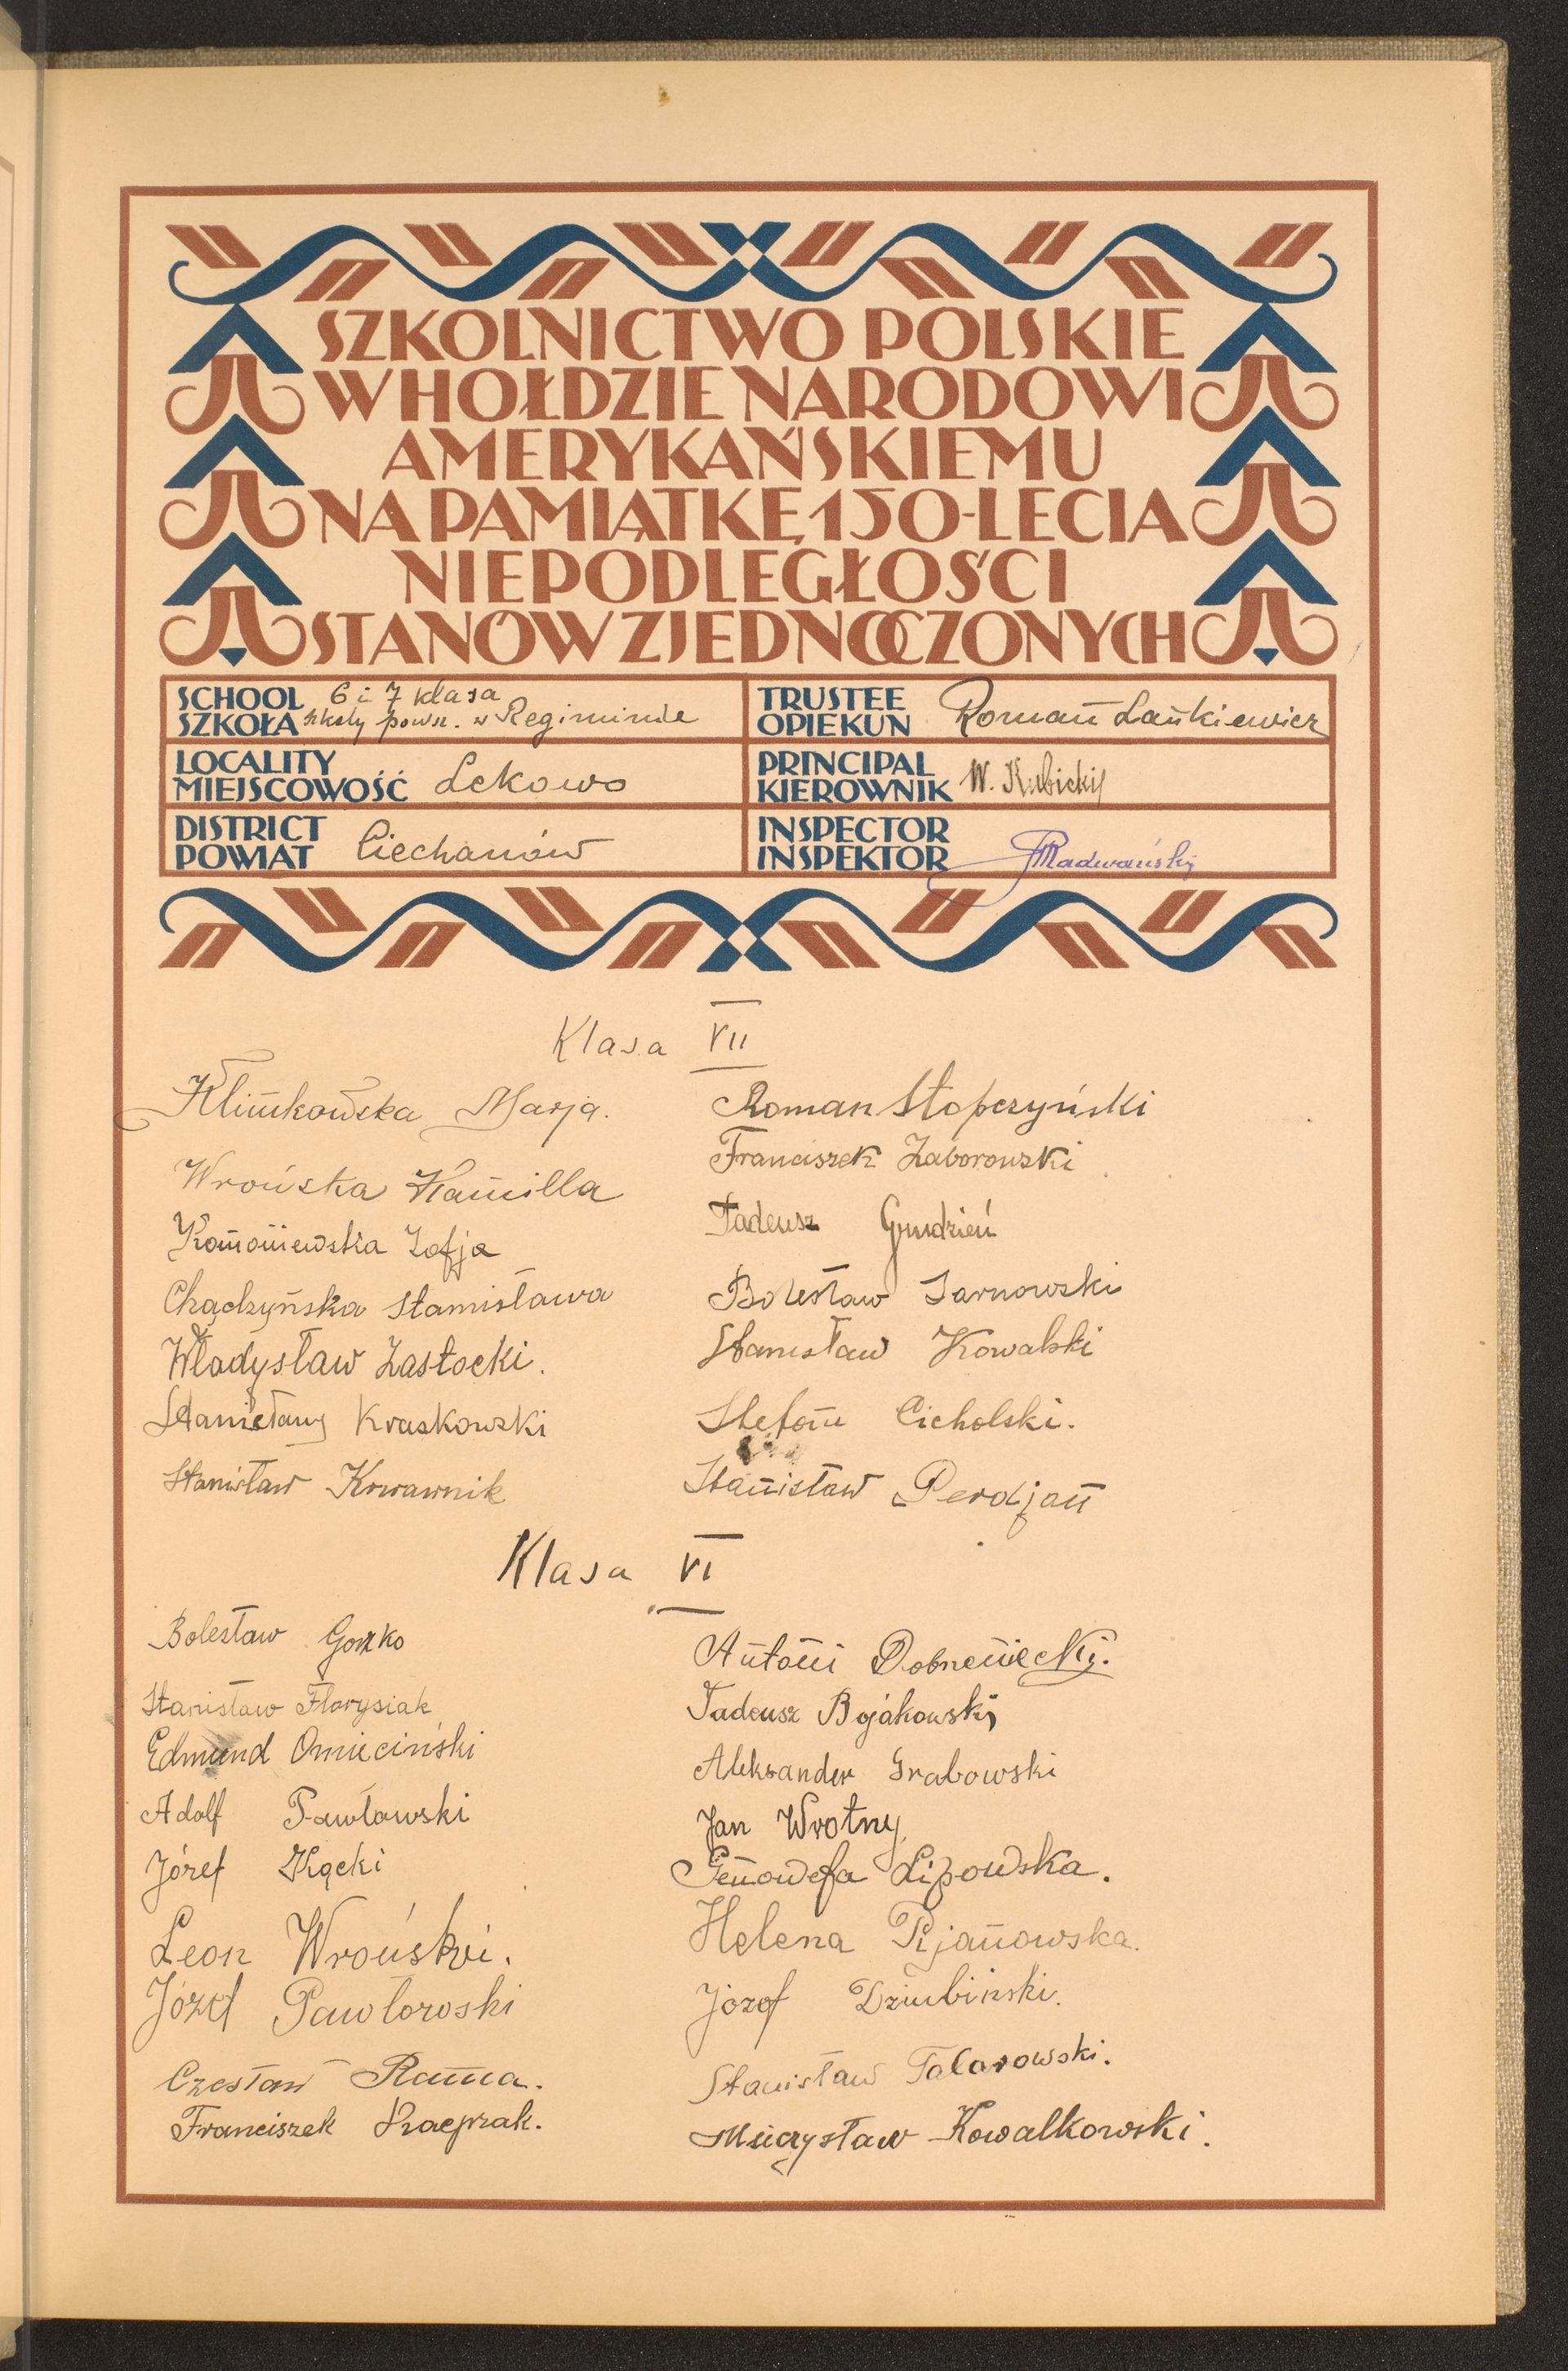 SZKOLNICTWO POLSKIE
W HOŁDZIE NARODOWI
AMERYKAŃSKIEMU
NA PAMIĄTKĘ 150-LECIA
NIEPODLEGŁOŚCI
STANÓW ZJEDNOCZONYCH
SCHOOL 6 i 7 klasa
SZKOŁA szkoły powsz. w Regiminie
TRUSTEE
OPIEKUN Roman Lankiewicz
LOCALITY
MIEJSCOWOŚĆ Lekowo
PRINCIPAL
KIEROWNIK W. Kubicki
DISTRICT
POWIAT Ciechanów
INSPECTOR
INSPEKTOR Radwański
Klasa VII
Klimkowska Marja.
Wrońska Kamilla
Komoniewska Zofja
Chądzyńska Stanisława
Władysław Zastocki.
Kraskowski
Stanisław Krwawnik
Roman Stopczyński
Franciszek Zaborowski
Tadeusz Grudzień
Bolesław Sarnowski
Stanisław Kowalski
Stefan Cicholski.
Stanisław Perdjan
Klasa VI
Bolesław Gozko
Stanisław Florysiak
Edmund Omieciński
Adolf Pawłowski
Józef Kącki
Leon Wroński.
Józef Pawłowski
Czesław Rama.
Franciszek
Antoni
Tadeusz Bojakowski
Aleksander Grabowski
Jan Wrotny
Genowefa Lipowska.
Helena Pijanowska.
Józef Dziubiński.
Stanisław Talarowski.
Mieczysław Kowalkowski.